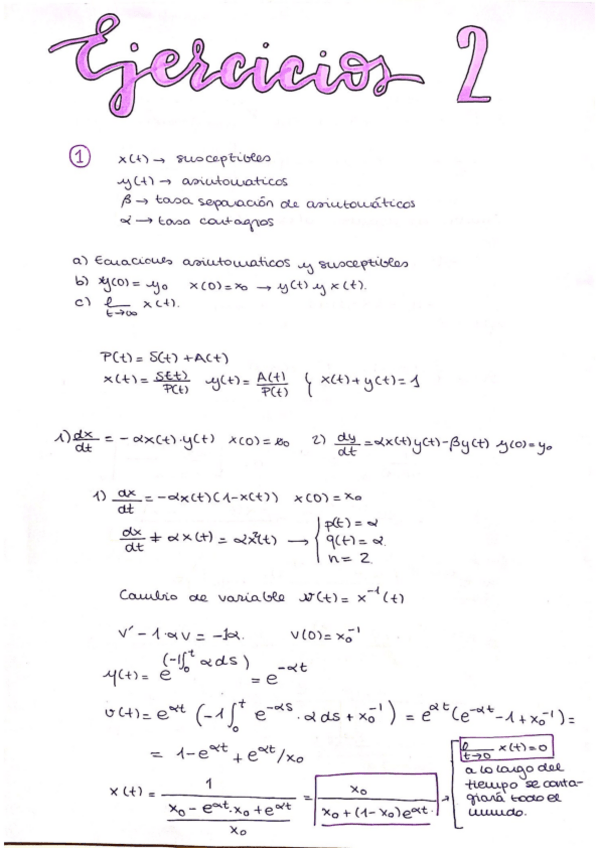 Ejercicios 2
① x(t) → susceptibles
y(t) → asintomaticos
β → tasa separación de asintomáticos
α → tasa contagios
a) Ecuaciones asintomaticos y susceptibles
b) y(0) = y₀ x(0) = x₀ → y(t) y x(t).
c) ℓ t→∞ x(t).
P(t) = S(t) + A(t)
x(t) = S(t)/P(t) y(t) = A(t)/P(t) { x(t) + y(t) = 1
1) dx/dt = -αx(t)·y(t) x(0) = x₀ 2) dy/dt = αx(t)y(t) - βy(t) y(0) = y₀
1) dx/dt = -αx(t)(1-x(t)) x(0) = x₀
dx/dt + αx(t) = αx²(t) → { p(t) = α
q(t) = α
n = 2
Cambio de variable v(t) = x⁻¹(t)
v' - 1·αv = -1α. v(0) = x₀⁻¹
y(t) = e^(-1∫₀ᵗ α ds) = e^(-αt)
v(t) = e^(αt) (-1∫₀ᵗ e^(-αs)·α ds + x₀⁻¹) = e^(αt)(e^(-αt) - 1 + x₀⁻¹) =
= 1 - e^(αt) + e^(αt)/x₀
x(t) = 1/((x₀ - e^(αt)·x₀ + e^(αt))/x₀) = x₀/(x₀ + (1-x₀)e^(αt)).
ℓ t→0 x(t) = 0
a lo largo del
tiempo se conta-
giará todo el
mundo.